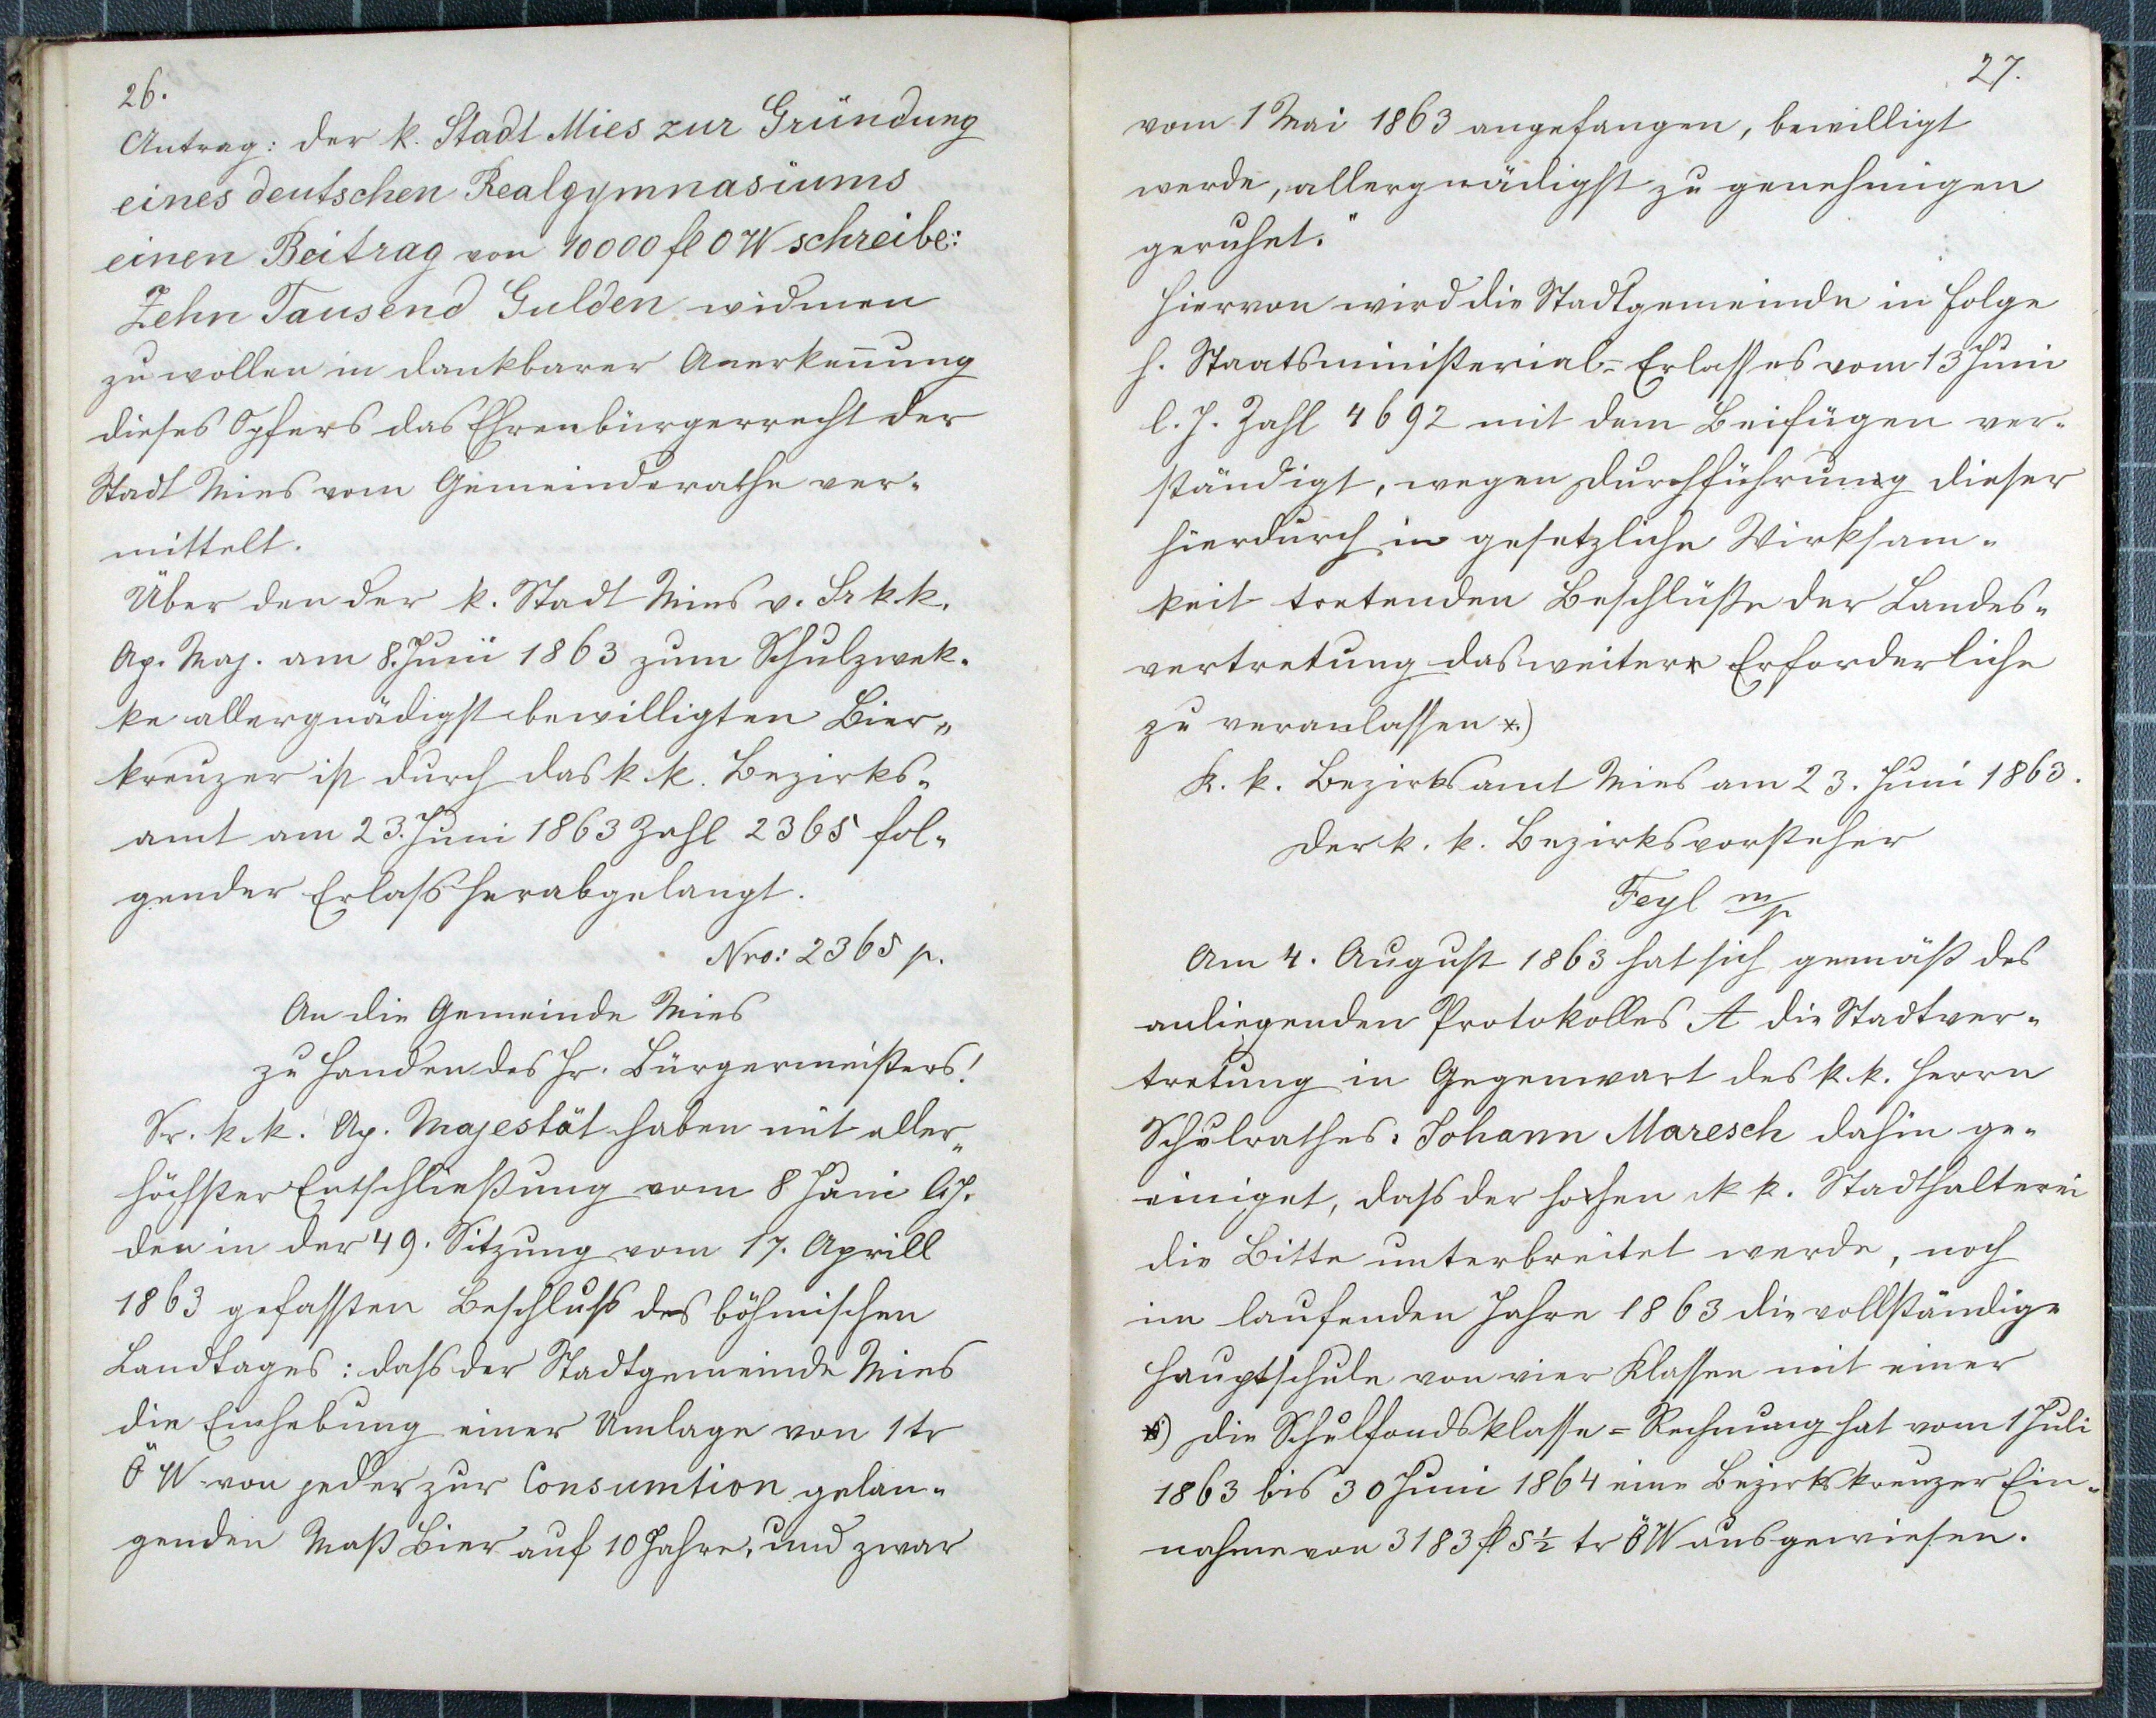 26.
Antrag: der k. Stadt Mies zur Gründung
eines deutschen Realgymnasiums
einen Beitrag von 10000 fl OW schreibe:
Zehn Tausend Gulden widmen
zu wollen in dankbarer Anerkeñung
dieses Opfers das Ehrenbürgerrecht der
Stadt Mies vom Gemeinderathe ver-
mittelt.
Über den der k. Stadt Mies v. Sr k. k.
Ap. Maj. am 8. Juni 1863 zum Schulzwek-
ke allergnädigst bewilligten Bier-
kreuzer ist durch das k. k. Bezirks-
amt am 23. Juni 1863 Zahl 2365 fol-
gender Erlaß herabgelangt.
Nro: 2365 p.
An die Gemeinde Mies
zu Handen des Hr. Bürgermeisters!
Sr. k. k. Ap. Majestät haben mit aller-
höchster Entschließung vom 8 Juni l. J.
den in der 49. Sitzung vom 17. Aprill
1863 gefassten Beschluß des böhmischen
Landtages: daß der Stadtgemeinde Mies
die Einhebung einer Umlage von 1 kr
Ö W von jeder zur Consumtion gelan-
genden Maß Bier auf 10 Jahre, und zwar
27.
vom 1 Mai 1863 angefangen, bewilligt
werde, allergnädigst zu genehmigen
geruhet."
Hiervon wird die Stadtgemeinde in Folge
h. Staatsministerial-Erlasses vom 13 Juni
l. J. Zahl 4692 mit dem Beifügen ver-
ständigt, wegen Durchführung dieser
hierdurch in gesetzliche Wirksam-
keit tretenden Beschlüße der Landes-
vertretung das weitere Erforderliche
zu veranlassen *.)
K. k. Bezirksamt Mies am 23. Juni 1863.
Der k. k. Bezirksvorsteher
Feyl m/p
Am 4. August 1863 hat sich gemäß des
anliegenden Protokolles A die Stadtver-
tretung in Gegenwart des k. k. Herrn
Schulrathes: Johann Maresch dahin ge-
einiget, daß der hohen k k. Stadthalterei
die Bitte unterbreitet werde, noch
im laufenden Jahre 1863 die vollständige
Hauptschule von vier Klassen mit einer
*) Die Schulfondsklasse-Rechnung hat vom 1 Juli
1863 bis 30 Juni 1864 eine Bezirkskreuzer Ein-
nahme von 3183 fl 5½ kr ÖW ausgewiesen.